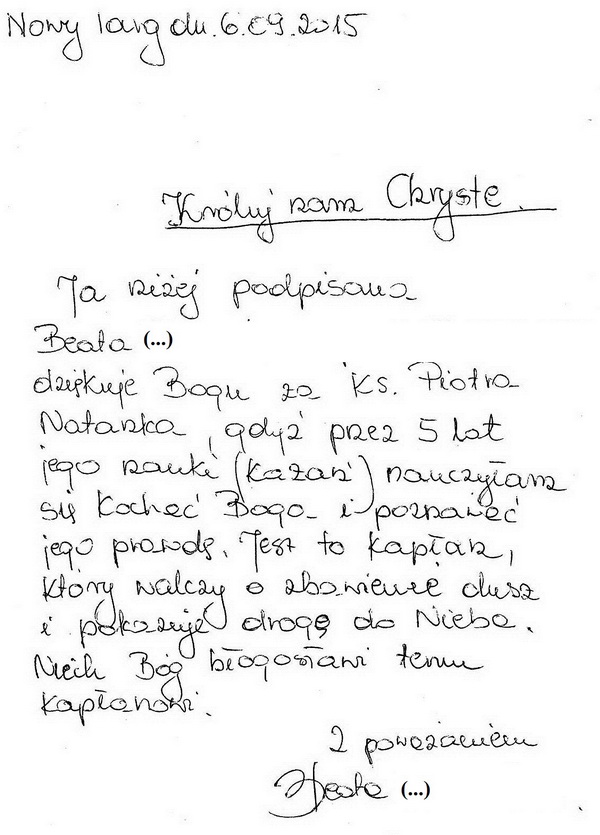 Nowy Targ dn. 6.09.2015
Króluj nam Chryste.
Ja niżej podpisana
Beata (...)
dziękuje Bogu za ks. Piotra
Natanka, gdyż przez 5 lat
jego nauki (kazań) nauczyłam
się kochać Boga i poznawać
jego prawdę. Jest to kapłan,
który walczy o zbawienie dusz
i pokazuje drogę do Nieba.
Niech Bóg błogosławi temu
kapłanowi.
Z poważaniem
Beata (...)